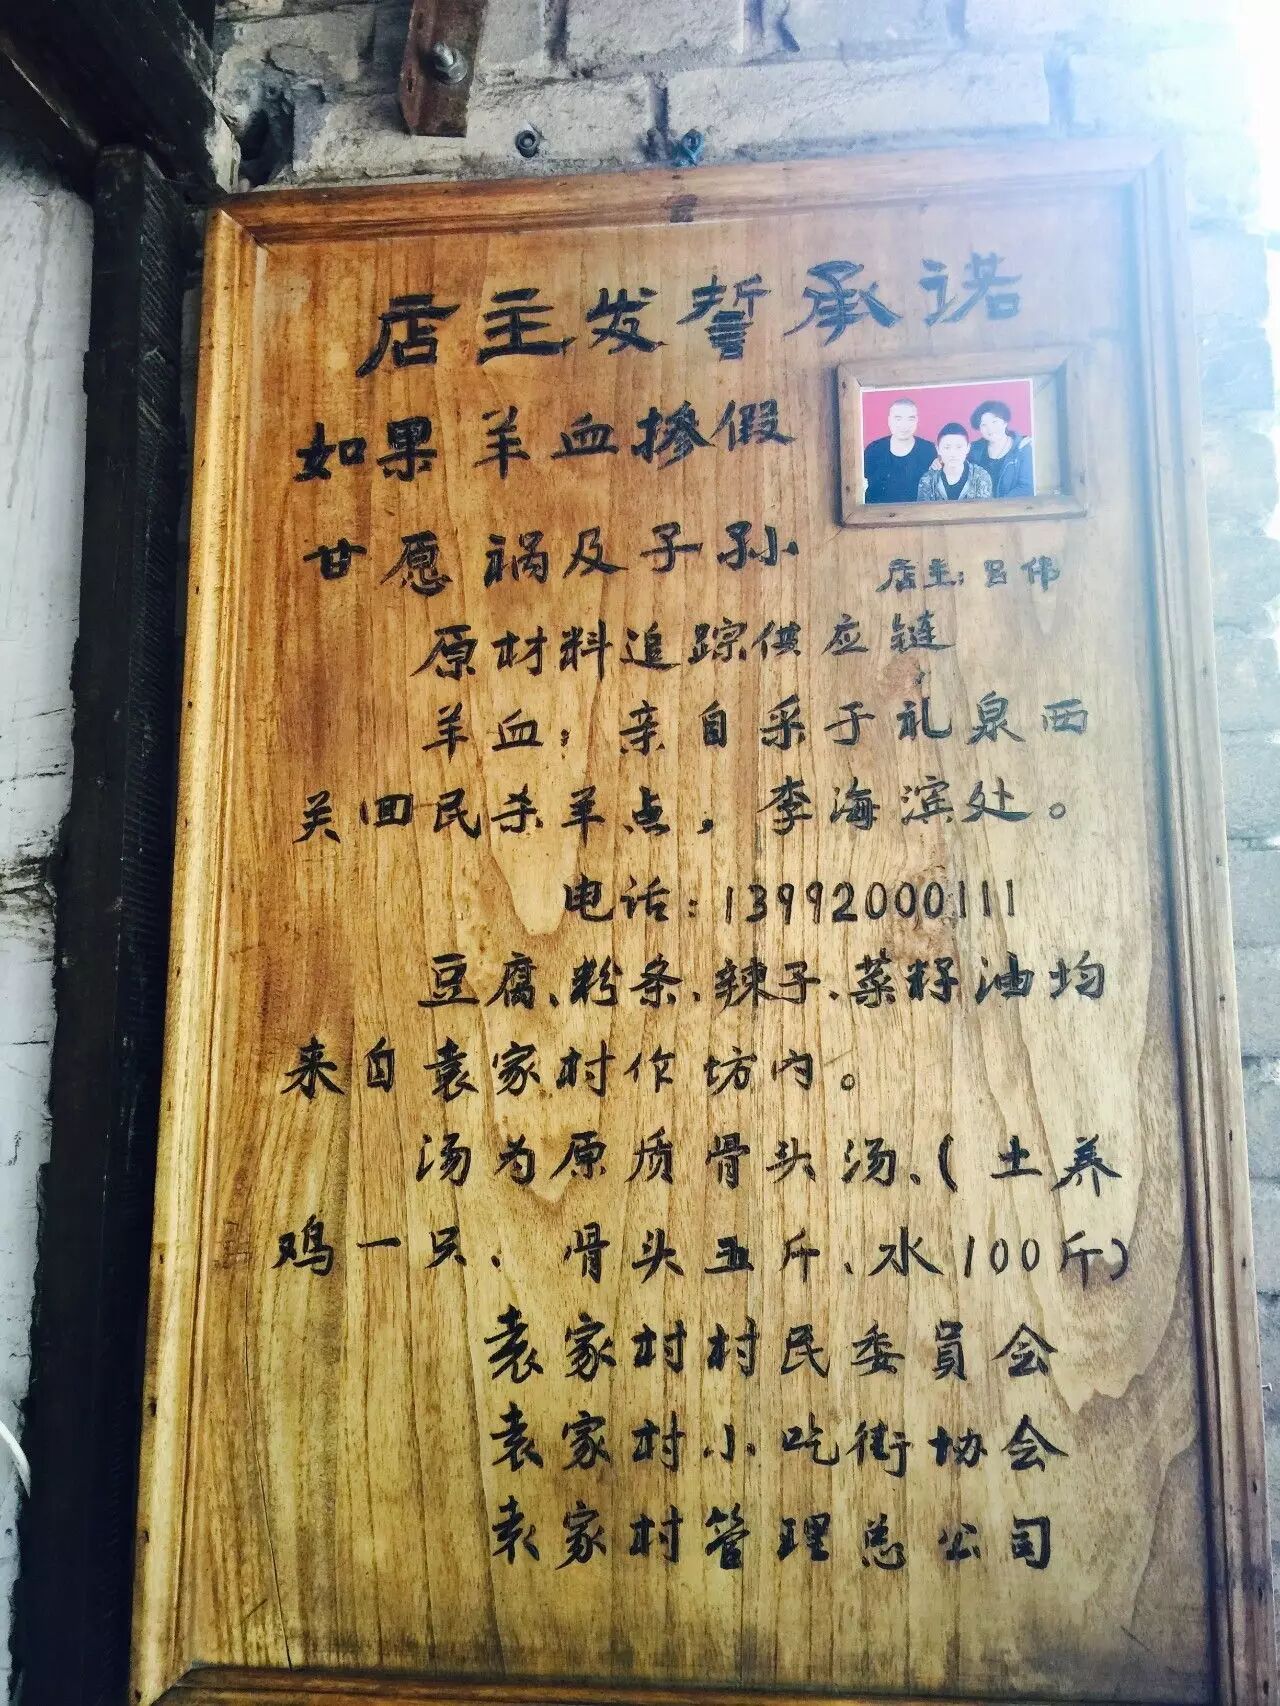 店主发誓承诺
如果羊血掺假
甘愿祸及子孙
店主：吕伟
原材料追踪供应链
羊血：亲自采于礼泉西
关回民杀羊点，李海滨处。
电话：13992000111
豆腐、粉条、辣子、菜籽油均
来自袁家村作坊内。
汤为原质骨头汤、(土养
鸡一只、骨头五斤、水100斤)
袁家村村民委员会
袁家村小吃街协会
袁家村管理总公司